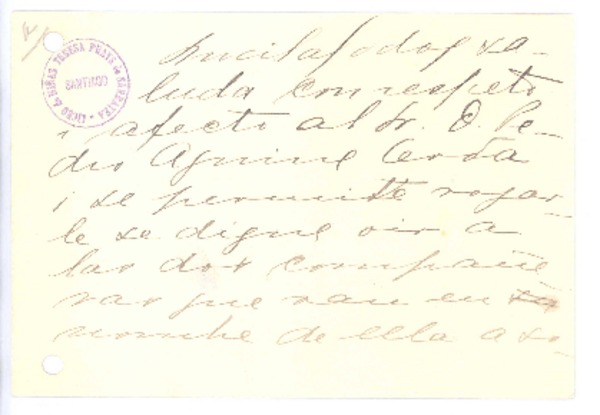 LICEO de NIÑAS TERESA PRATS de SARRATEA
SANTIAGO
Lucila Godoy sa-
luda con respeto
i afecto al Sr. D. Pe-
dro Aguirre Cerda
i se permite rogar-
le se digne oir a
las dos compañe
ras que van en su
nombre de ella a so-